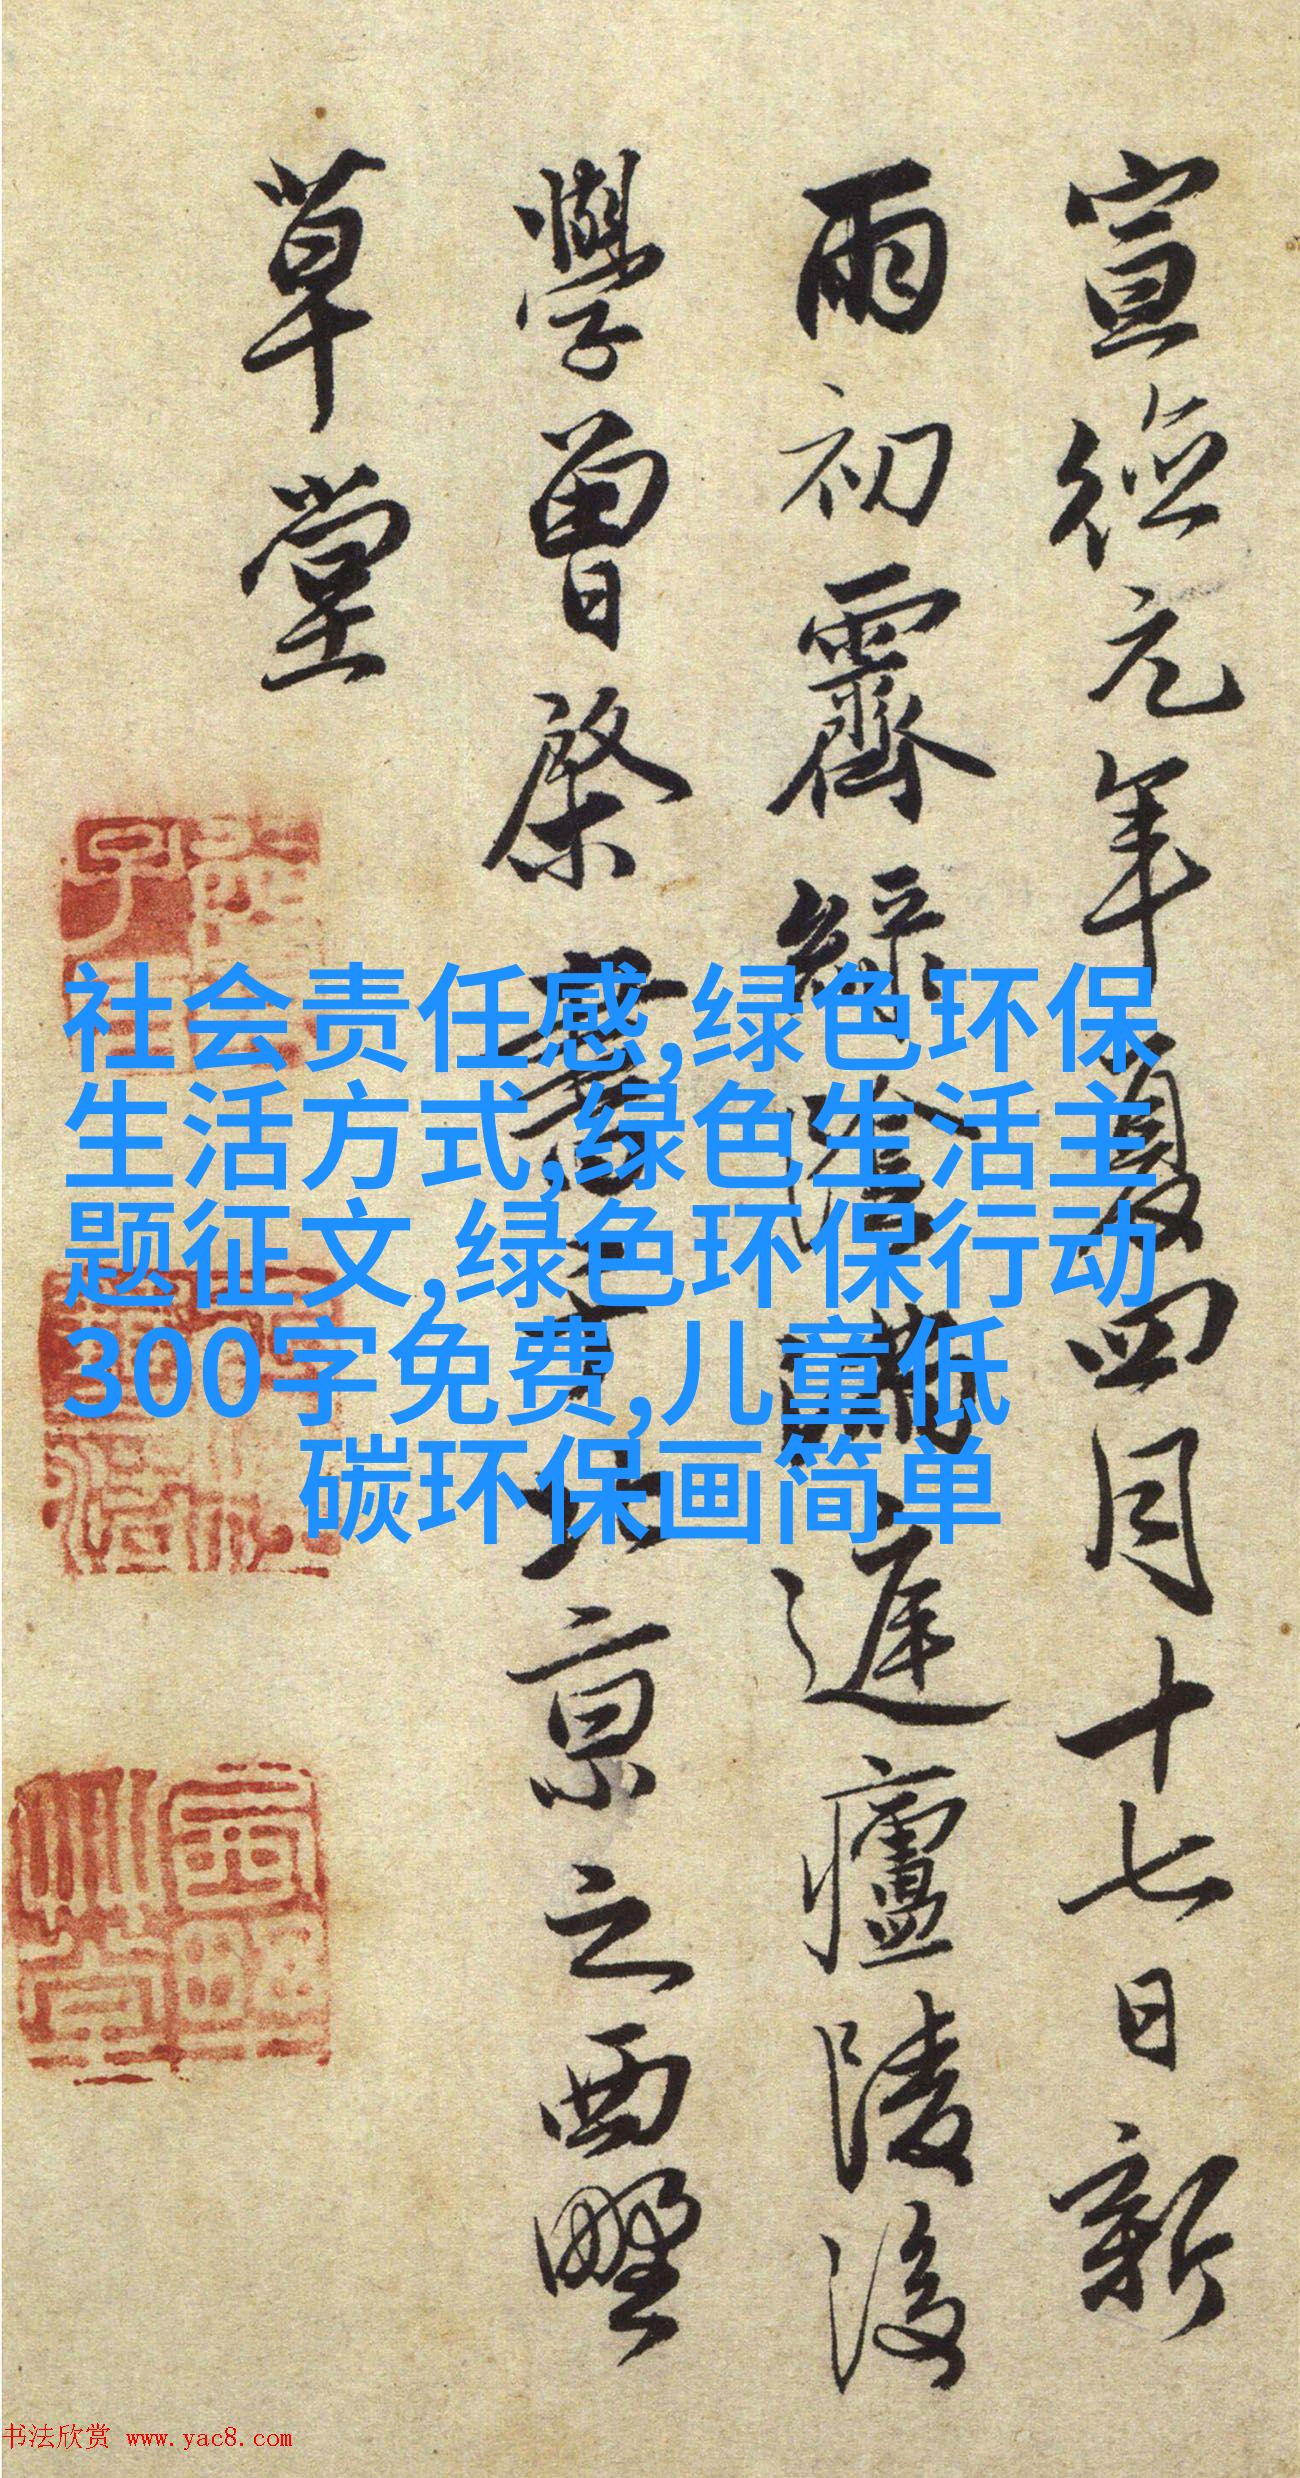 宣德元年夏四月十七日新
雨初霽綠陰滿遲廬陵後
學曾棨書于北京之西墅
草堂
社会责任感,绿色环保
生活方式,绿色生活主
题征文,绿色环保行动
300字免费,儿童低
碳环保画简单
书法欣赏 www.yac8.com